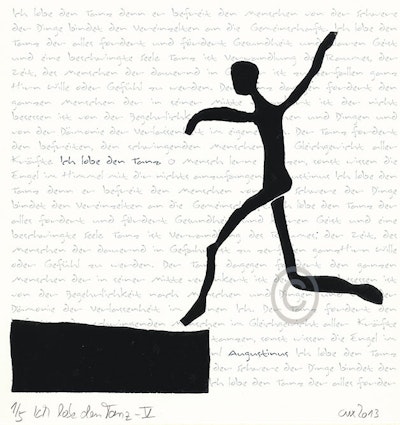 Ich lobe den Tanz denn er befreit den Menschen von der Schwere
der Dinge bindet den Vereinzelten an die Gemeinschaft Ich lobe den
Tanz der alles fordert und fördert Gesundheit und klaren Geist
und eine beschwingte Seele Tanz ist Verwandlung des Raumes, der
Zeit, des Menschen der dauernd in Gefahr ist zu zerfallen ganz
Hirn Wille oder Gefühl zu werden. Der Tanz dagegen fordert den
ganzen Menschen der in seiner Mitte ist der nicht
besessen ist von der Begehrlichkeit
von der Dämonie der Verlassenheit im eigenen Der Tanz
den befreiten, den schwingenden Menschen Gleichgewicht aller
Kräfte. Ich lobe den Tanz O Mensch lerne tanzen, sonst wissen die
Engel im Himmel mit dir nichts anzufangen Augustinus Ich lobe den
Tanz denn er befreit den Menschen von der Schwere der Dinge
bindet den Vereinzelten an die Gemeinschaft Ich lobe den Tanz der
alles fordert und fördert Gesundheit und klaren Geist und eine
beschwingte Seele Tanz ist Verwandlung des Raumes, der Zeit, des
Menschen der dauernd in Gefahr
oder Gefühl zu werden. Der Tanz dagegen fordert den ganzen
Menschen der in seiner Mitte verankert ist der nicht besessen ist
von der Begehrlichkeit nach Menschen und Dingen und
der Dämonie der Verlassenheit
befreiten, den schwingenden Menschen im Gleichgewicht aller Kräfte
tanzen, sonst wissen die Engel im
Augustinus Ich lobe den Tanz
der Schwere der Dinge
Ich lobe den Tanz der
©
1/5 Ich lobe den Tanz - V 2013